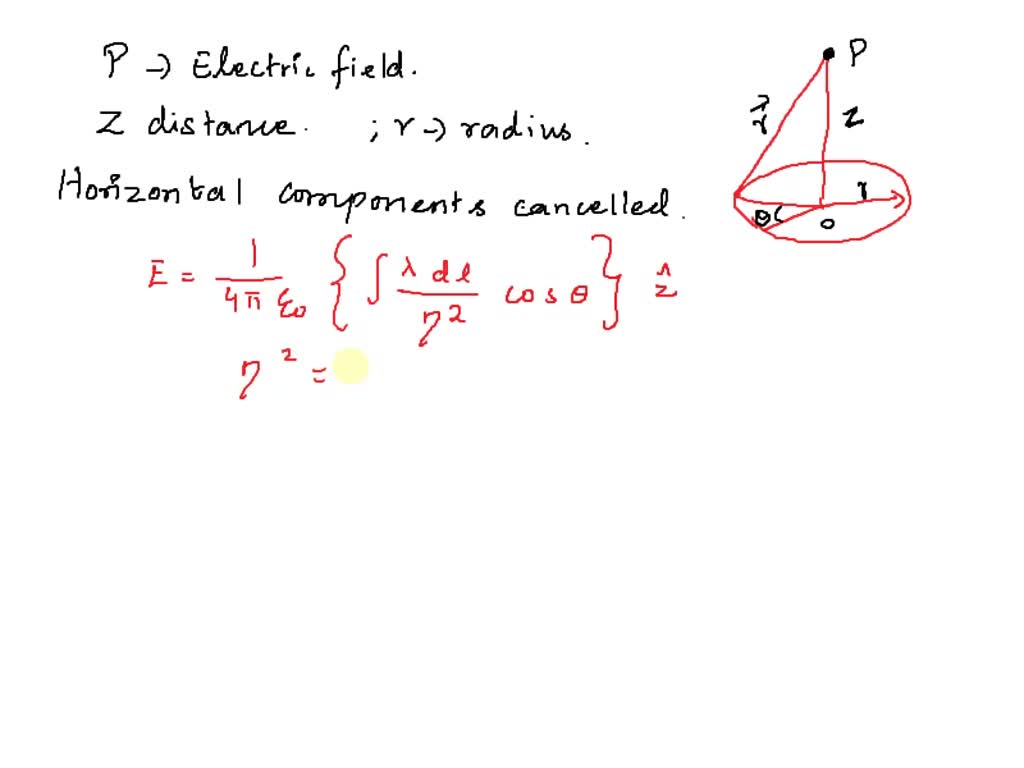 P → Electric field.
Z distance. ; r → radius.
Horizontal components cancelled.
E = 1/4π ε0 { ∫ λ dl / η² cos θ } ẑ
η² =
P
Z
r
θ
0